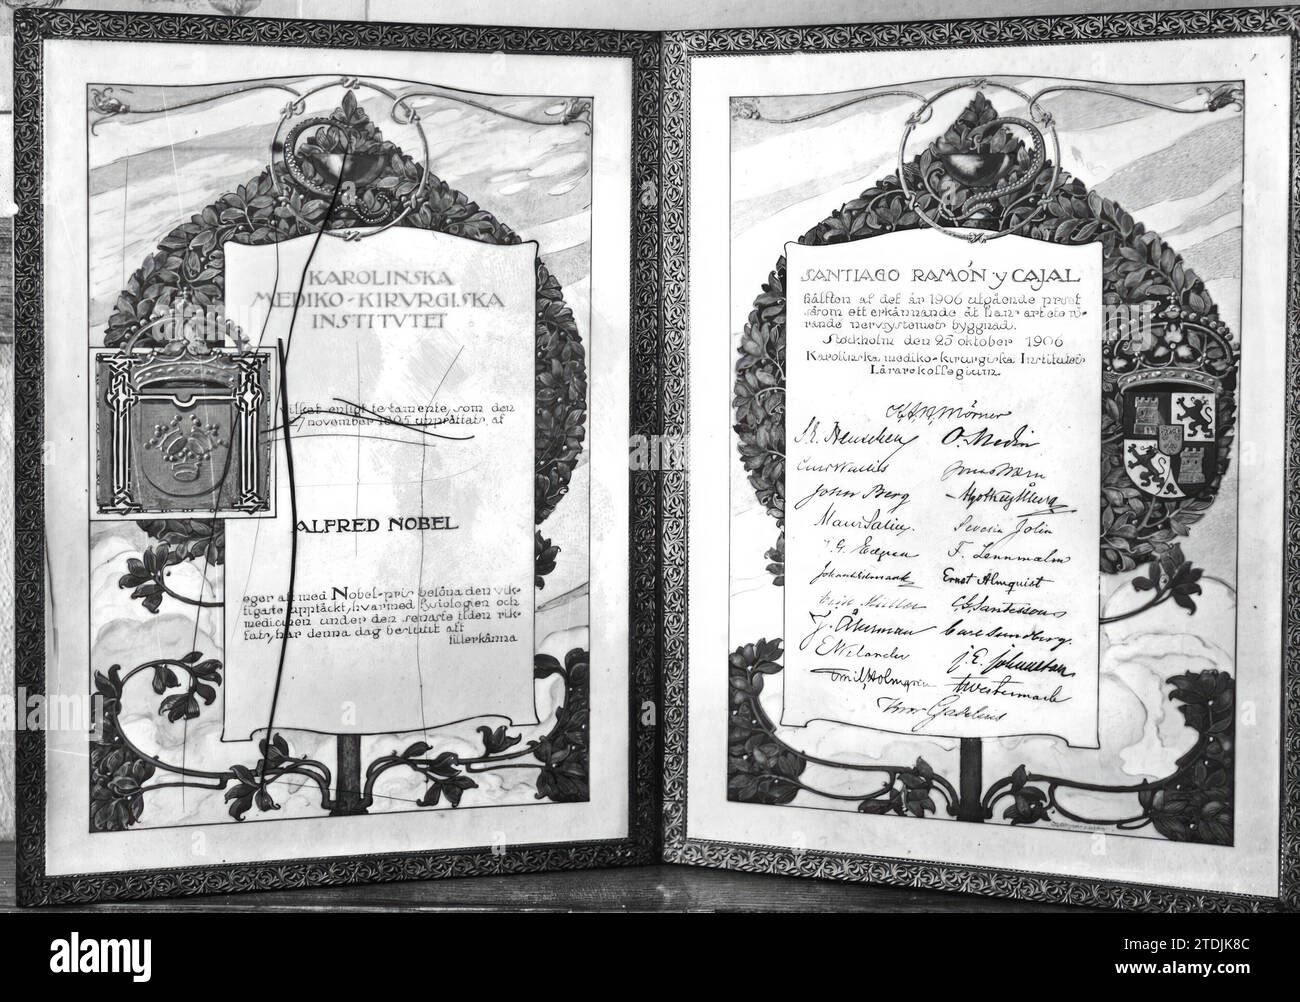 KAROLINSKA
MEDIKO-KIRVRGISKA
INSTITVTET
vilket enligt testamente, som den
27 november 1895 upprättats, af
ALFRED NOBEL
eger att med Nobel-pris belöna den vik-
tigaste upptäckt, hvarmed fysiologien och
medicinen under den senaste tiden rik-
tats, har denna dag beslutit att
tillerkänna
SANTIAGO RAMÓN y CAJAL
hälften af det år 1906 utgående priset
såsom ett erkännande åt hans arbete rö-
rande nervsystemets byggnad.
Stockholm den 25 oktober 1906
Karolinska mediko-kirurgiska Institutets
Lärarekollegium.
K.A.H. Mörner
S.E. Henschen O. Medin
Curt Wallis Jonas Wærn
John Berg
Severin Jolin
J.G. Edgren F. Lennmalm
Ernst Almquist
Erik Müller C.G. Santesson
J. Åkerman Carl Sundberg.
E. Welander J.E. Johansson
Emil Holmgren A Westermark
Ivar Gadelius
alamy
Image ID: 2TDJK8C
www.alamy.com